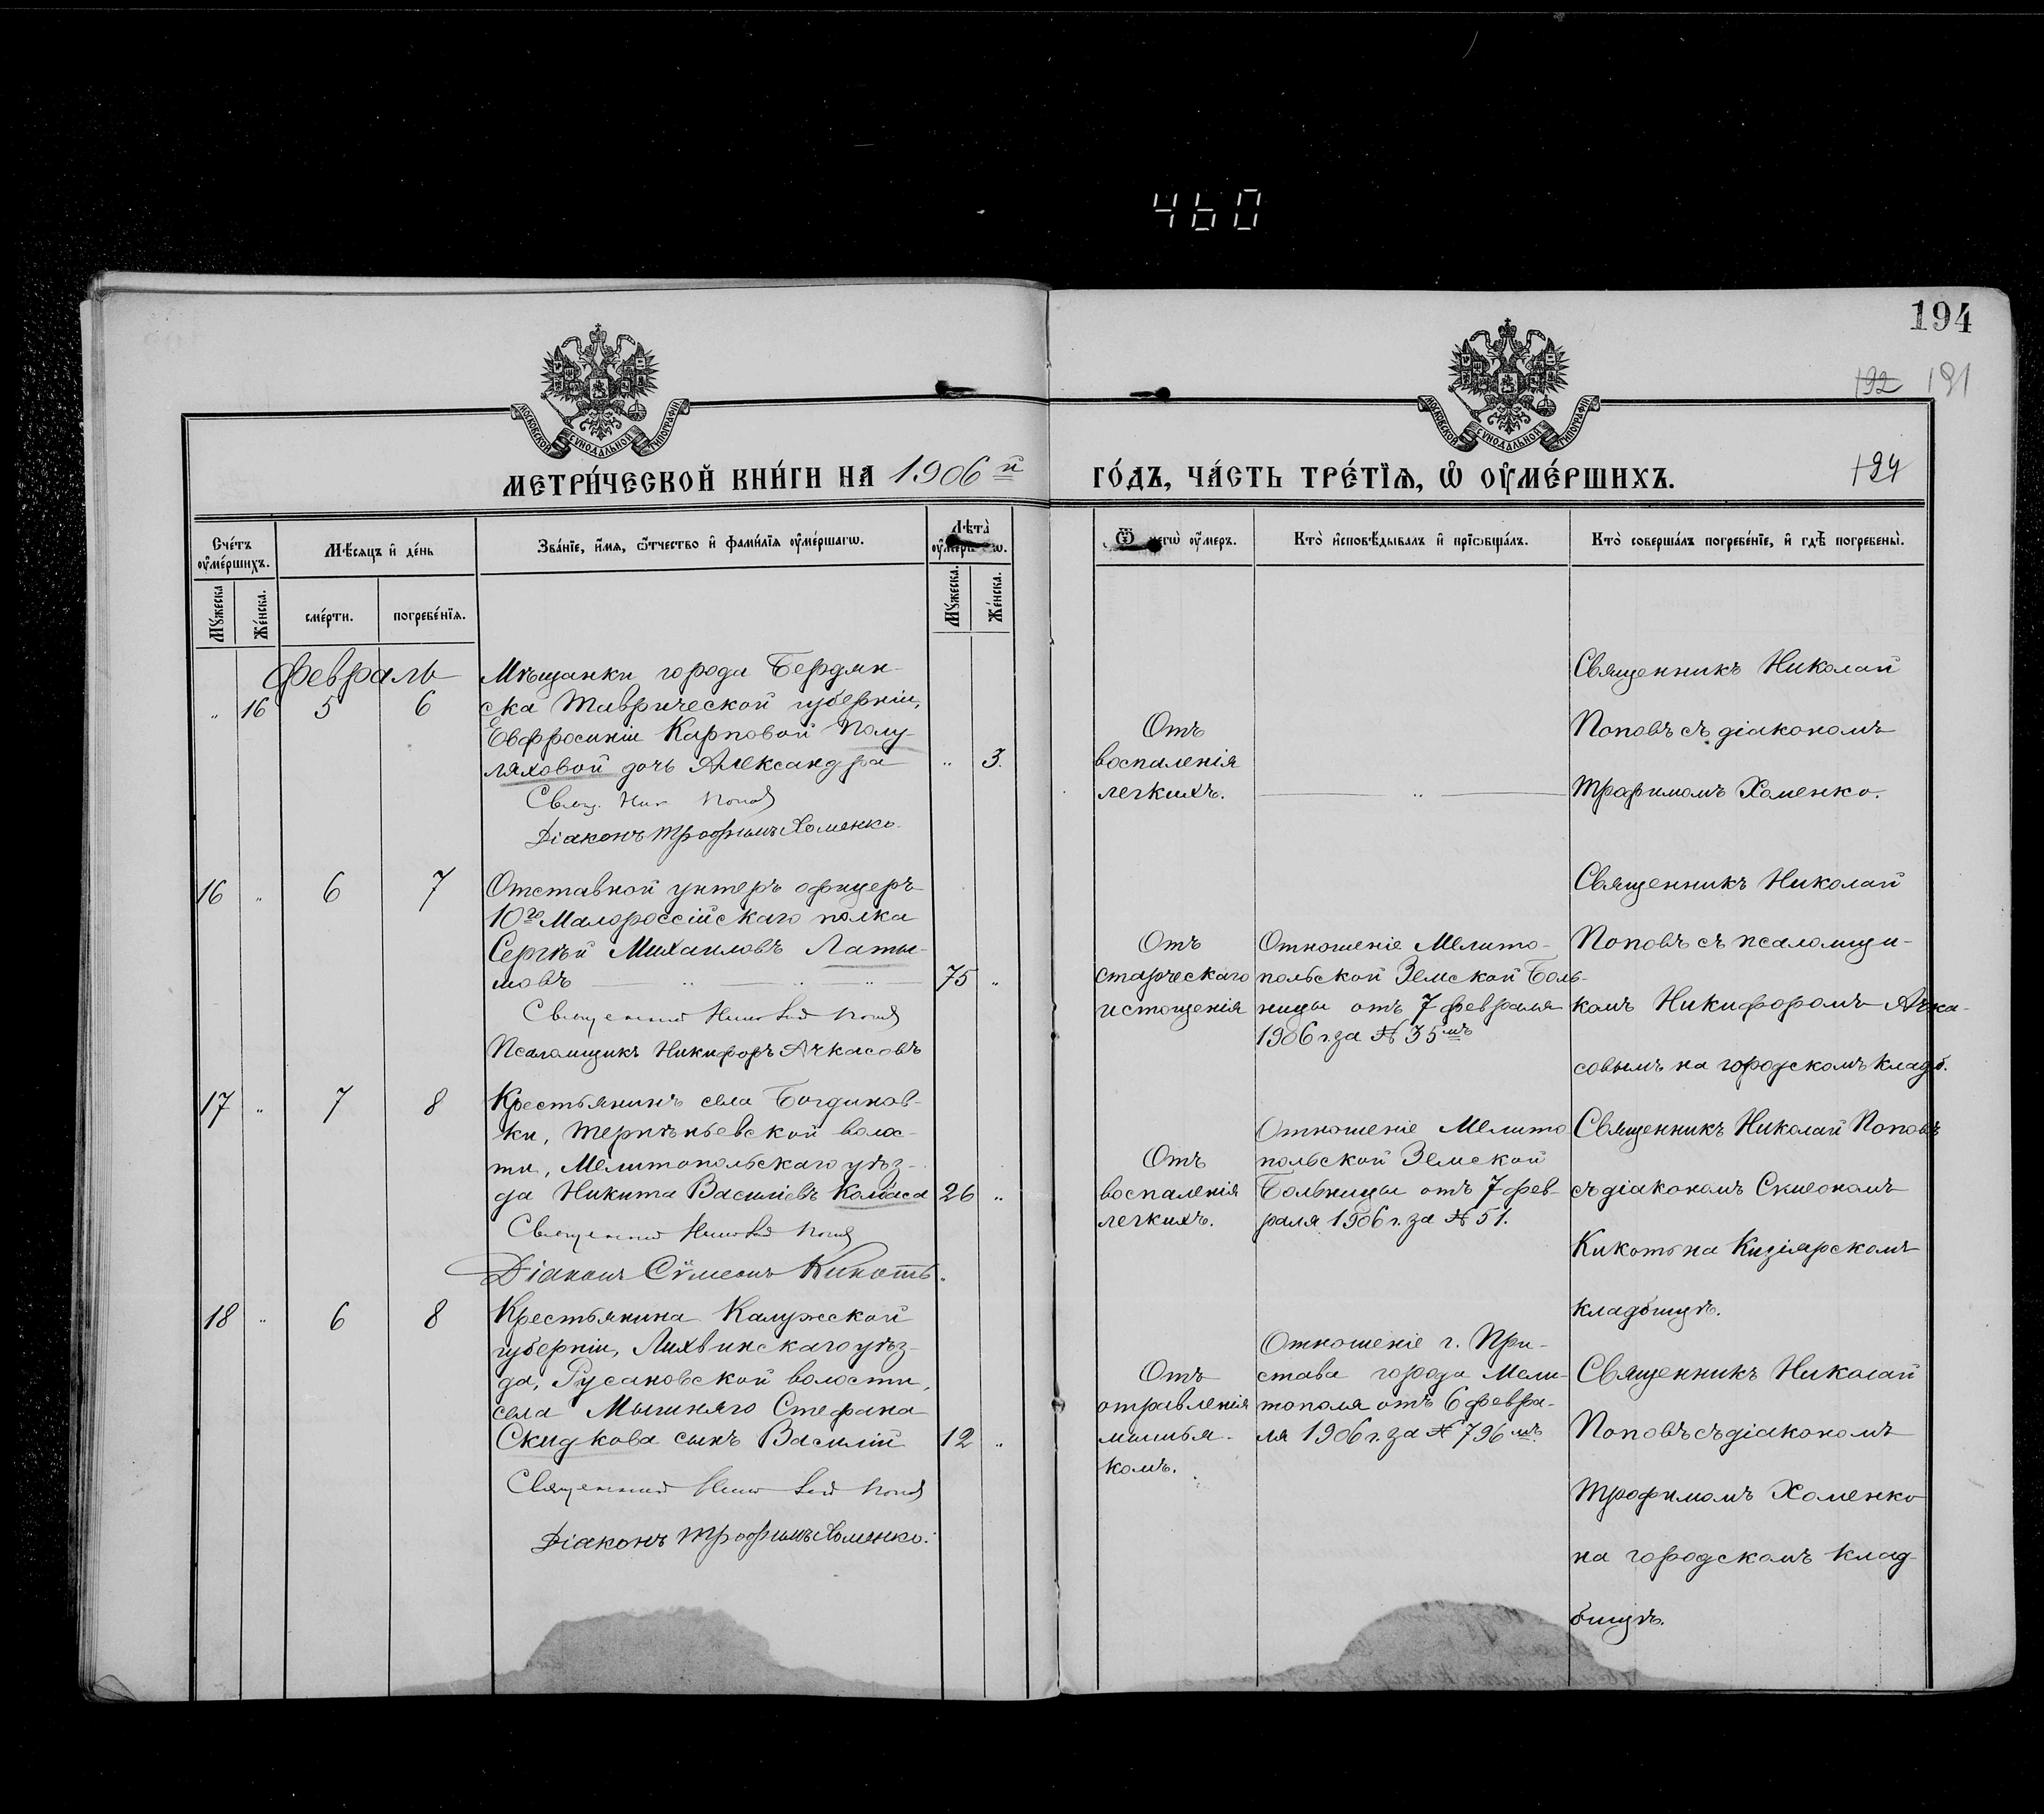 460
194
192 191
194
МОСКОВСКОЙ СѴНОДАЛЬНОЙ ТИПОГРАФІИ
МОСКОВСКОЙ СѴНОДАЛЬНОЙ ТИПОГРАФІИ
МЕТРИ́ЧЕСКОЙ КНИ́ГИ НА 1906 й ГО́ДЪ, ЧА́СТЬ ТРЕ́ТЇѦ, Ѡ҆ ОУ҆МЕ́РШИХЪ.
Сче́тъ оу҆ме́ршихъ.
Мѣ́сяцъ и҆ де́нь
Зва́нїе, и҆́мя, ѻ҆́тчество и҆ фами́лїя оу҆ме́ршагѡ.
Лѣта̀ оу҆ме́ршагѡ.
Ѿ чегѡ̀ оу҆́меръ.
Кто̀ и҆сповѣ́дывалъ и҆ прїѡбща́лъ.
Кто̀ соверша́лъ погребе́нїе, и҆ гдѣ̀ погребены̀.
Му́жеска
Же́нска.
сме́рти.
погребе́нїя.
Му́жеска.
Же́нска.
Февраль
" 16 5 6
Мѣщанки города Бердян-
ска Таврической губерніи,
Евфросиніи Карповой Полу-
ляховой дочь Александра " 3.
Свящ. Ник Попов
Діаконъ Трофимъ Хоменко.
Отъ
воспаленія
легкихъ.
"
Священникъ Николай
Поповъ съ діакономъ
Трофимомъ Хоменко.
16 " 6 7
Отставной унтеръ офицеръ
10го Малороссійскаго полка
Сергѣй Михаиловъ Латы-
мовъ " " " 75 "
Священник Николай Попов
Псаломщикъ Никифоръ Ачкасовъ
Отъ
старческаго
истощенія
Отношеніе Мелито-
польской Земской Боль-
ницы отъ 7 февраля
1906 г. за № 35 мъ
Священникъ Николай
Поповъ съ псаломщи-
комъ Никифоромъ Ачка-
совымъ на городскомъ кладб.
17 " 7 8
Крестьянинъ села Богданов-
ки, Терпѣньевской волос-
ти, Мелитопольскаго уѣз-
да Никита Василіевъ Колбаса 26 "
Священник Николай Попов
Діаконъ Сѷмеонъ Кикоть.
Отъ
воспаленія
легкихъ.
Отношеніе Мелито
польской Земской
Больницы отъ 7 фев-
раля 1906 г. за № 51.
Священникъ Николай Поповъ
съ діакономъ Симеономъ
Кикоть на Кизіярскомъ
кладбищѣ.
18 " 6 8
Крестьянина Калужской
губерніи, Лихвинскаго уѣз-
да, Русановской волости,
села Мышняго Стефана
Скидкова сынъ Василій 12 "
Священник Николай Попов
Діаконъ Трофимъ Хоменко.
Отъ
отравленія
мышья-
комъ.
Отношеніе г. При-
става города Мели-
тополя отъ 6 февра-
ля 1906 г. за № 796 мъ.
Священникъ Николай
Поповъ съ діакономъ
Трофимомъ Хоменко
на городскомъ клад-
бищѣ.